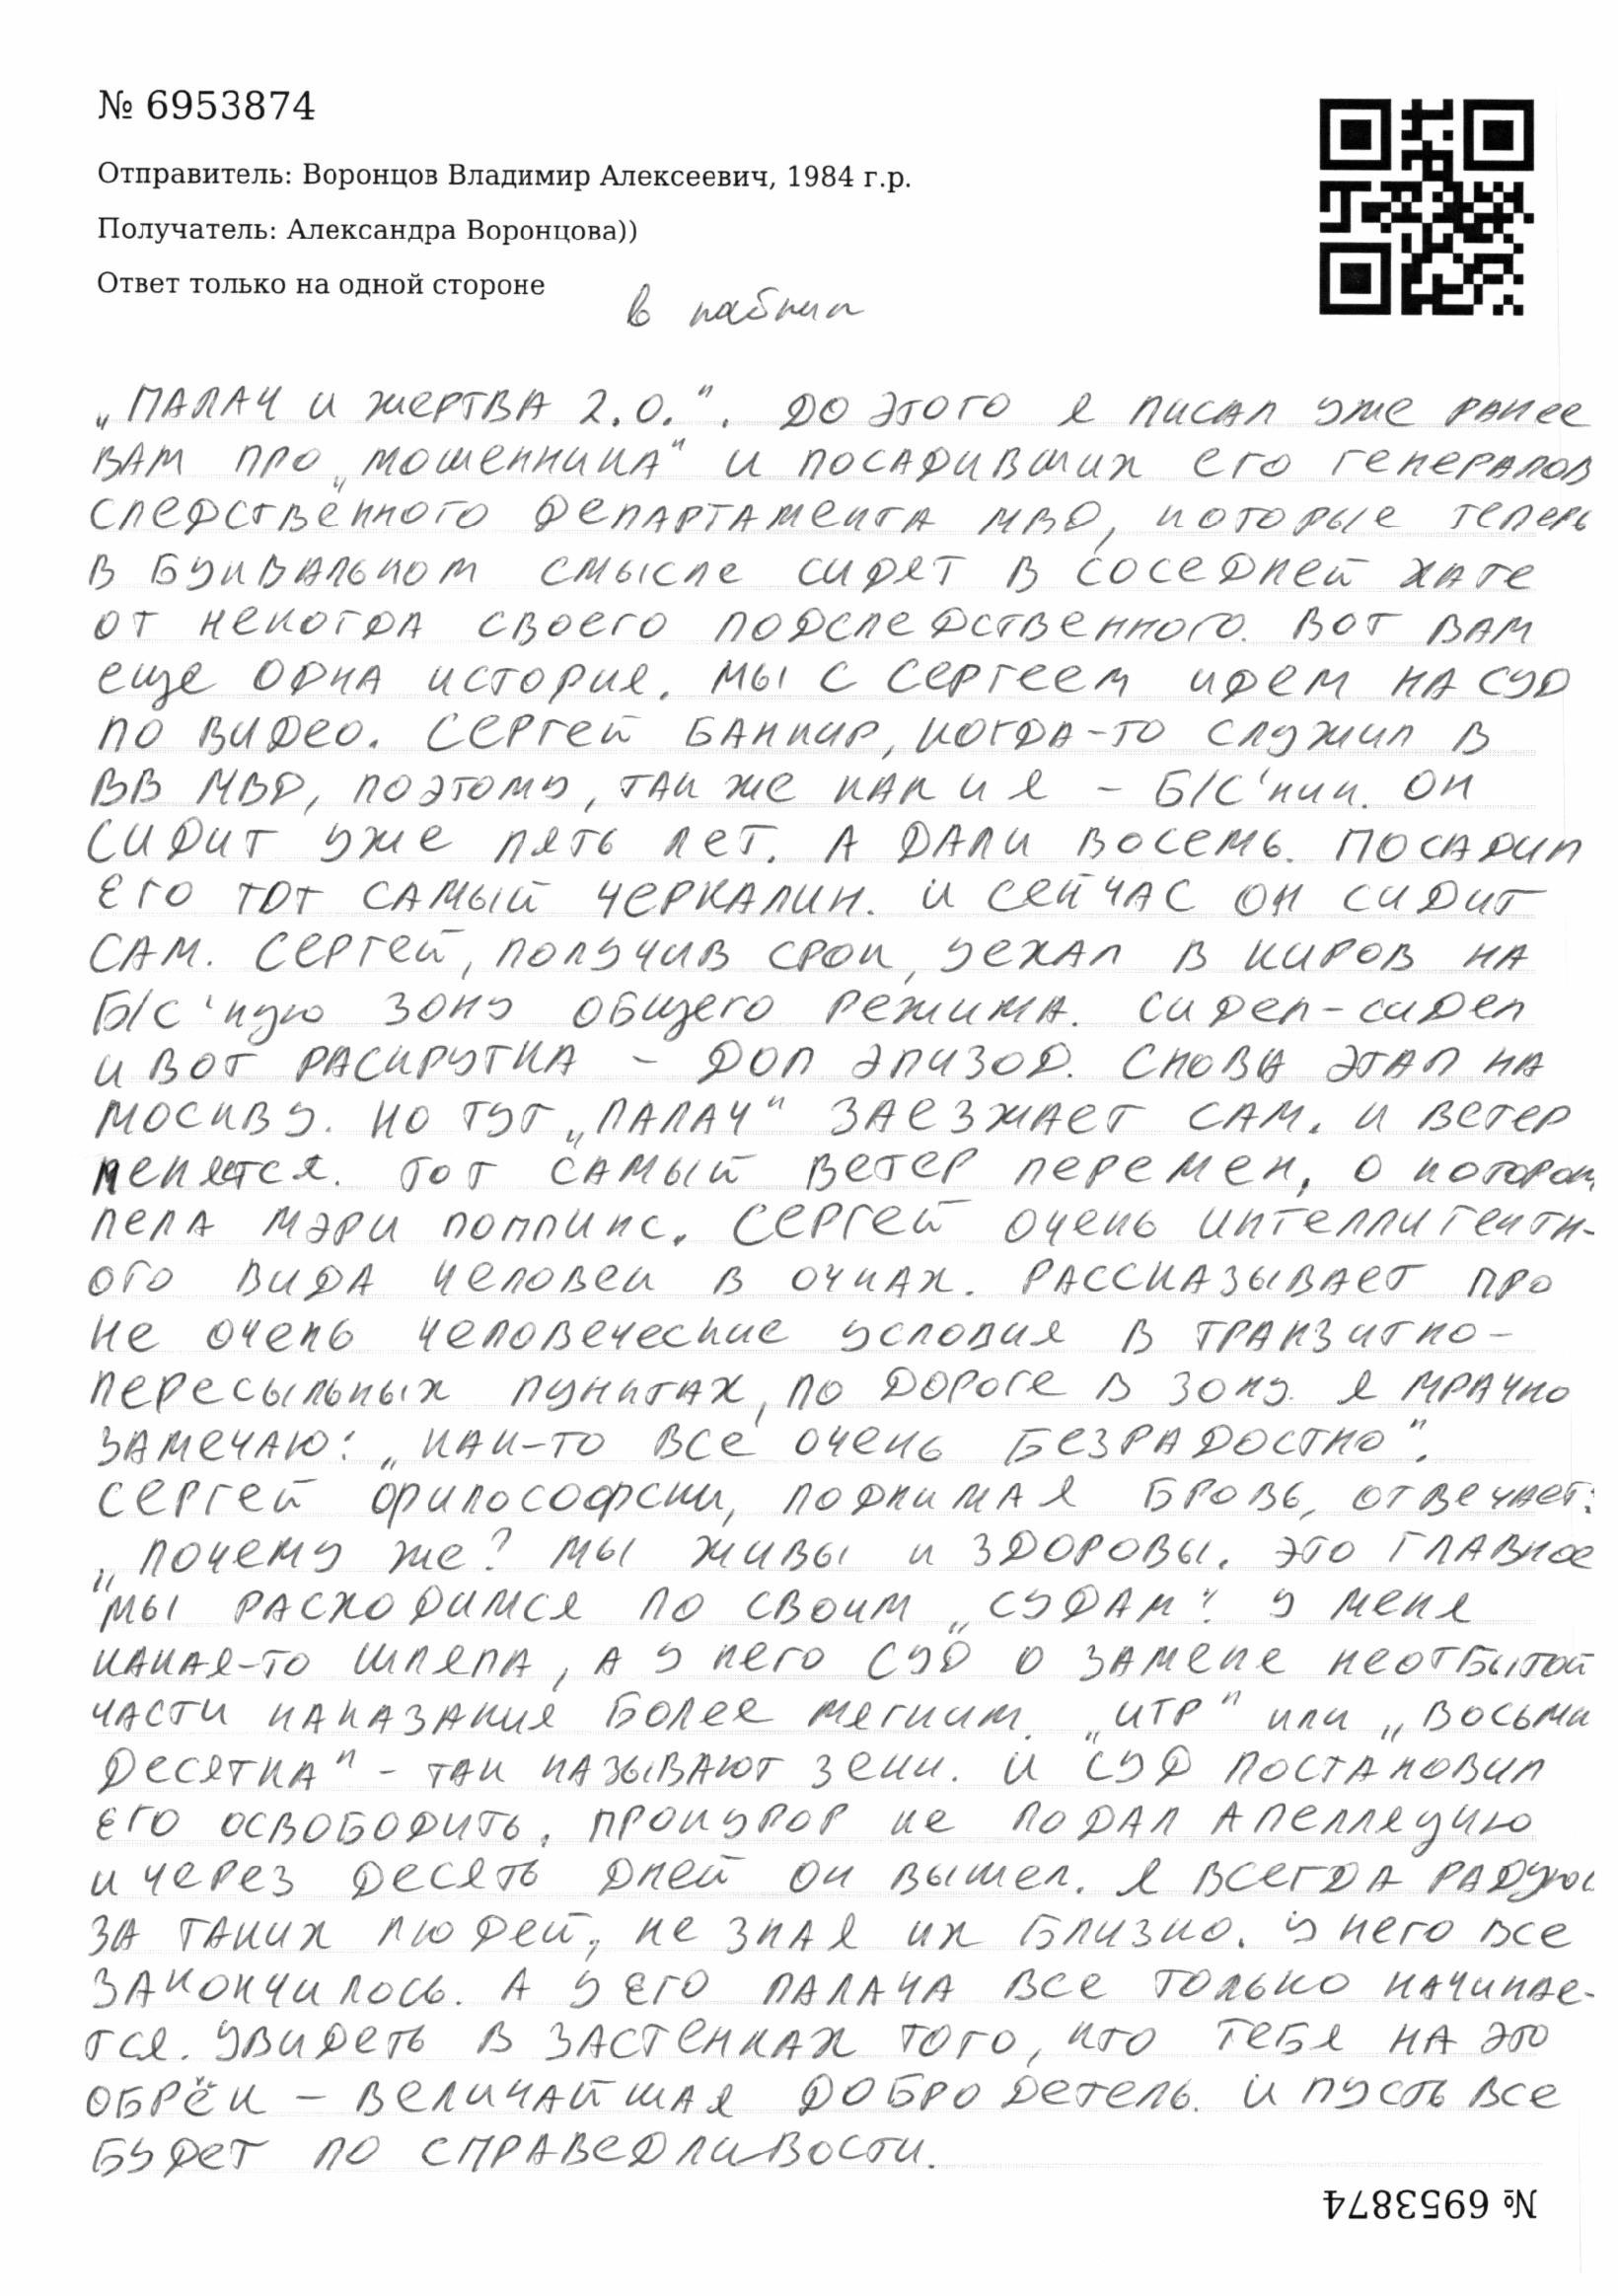 № 6953874
Отправитель: Воронцов Владимир Алексеевич, 1984 г.р.
Получатель: Александра Воронцова))
Ответ только на одной стороне
в паблик
„Палач и жертва 2.0.". До этого я писал уже ранее
вам про „мошенника" и посадивших его генералов
следственного департамента МВД, которые теперь
в буквальном смысле сидят в соседней хате
от некогда своего подследственного. Вот вам
еще одна история. Мы с Сергеем идем на суд
по видео. Сергей банкир, когда-то служил в
ВВ МВД, поэтому, так же как и я – Б/С'ник. Он
сидит уже пять лет. А дали восемь. Посадил
его тот самый Черкалин. И сейчас он сидит
сам. Сергей, получив срок, уехал в Киров на
Б/С'ную зону общего режима. Сидел-сидел
и вот раскрутка – доп эпизод. Снова этап на
Москву. Но тут „палач" заезжает сам. И ветер
меняется. Тот самый ветер перемен, о котором
пела Мэри Поппинс. Сергей очень интеллигентн-
ого вида человек в очках. Рассказывает про
не очень человеческие условия в транзитно-
пересыльных пунктах, по дороге в зону. Я мрачно
замечаю: „как-то всё очень безрадостно".
Сергей философски, поднимая бровь, отвечает:
„Почему же? Мы живы и здоровы. Это главное
"Мы расходимся по своим „судам". У меня
какая-то шляпа, а у него суд о замене неотбытой
части наказания более мягким. „ИТР" или „восьми
десятка" - так называют зеки. И суд постановил
его освободить. Прокурор не подал апелляцию
и через десять дней он вышел. Я всегда радуюс
за таких людей, не зная их близко. У него все
закончилось. А у его палача все только начинае-
тся. Увидеть в застенках того, кто тебя на это
обрёк – величайшая добродетель. И пусть все
будет по справедливости.
№ 6953874